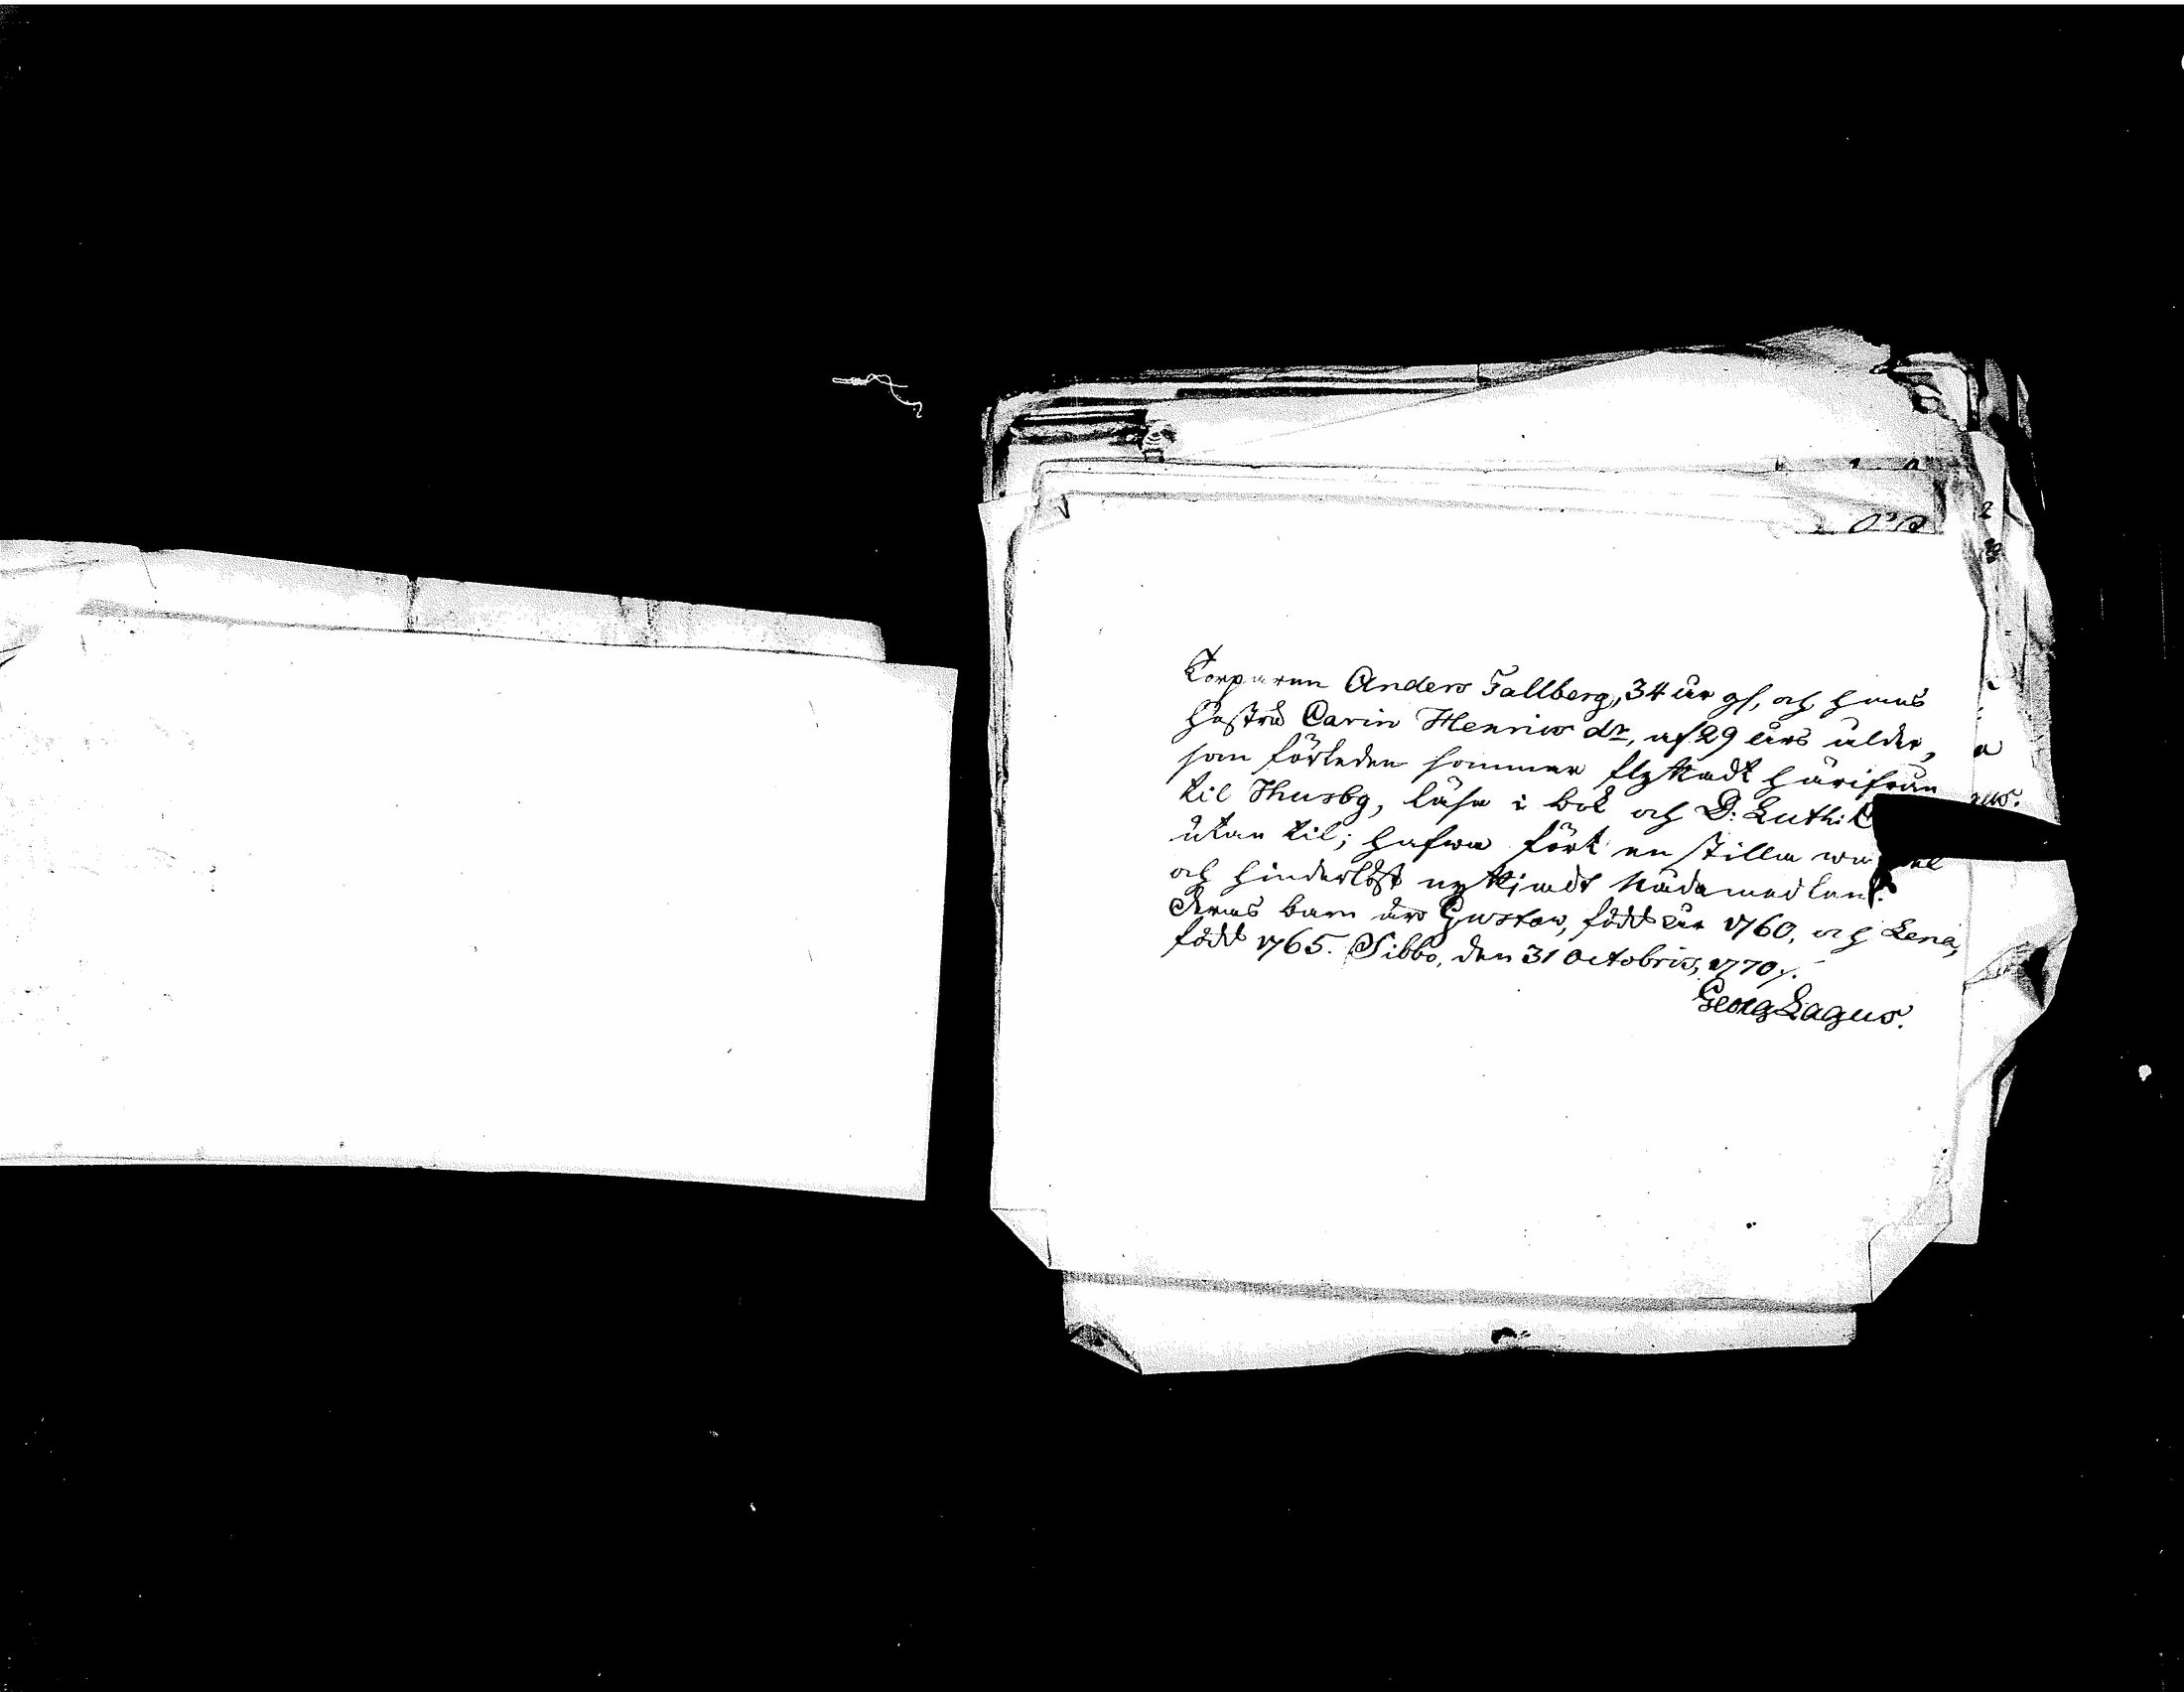 Torparen Anders Tallberg, 34 år gl, och hans
hustru Carin Henrics dr, af 29 års ålder,
som förleden sommar flyttadt härifrån
til Thusby, läsa i bok och D: Luth: C
utan til; hafwa fört en stilla wa del
och hinderlöst nyttjadt Nådamedlen.
Deras barn äro Gustav, född år 1760, och Lena,
född 1765. Sibbo, den 31 Octobris, 1770.
Georg Lagus.